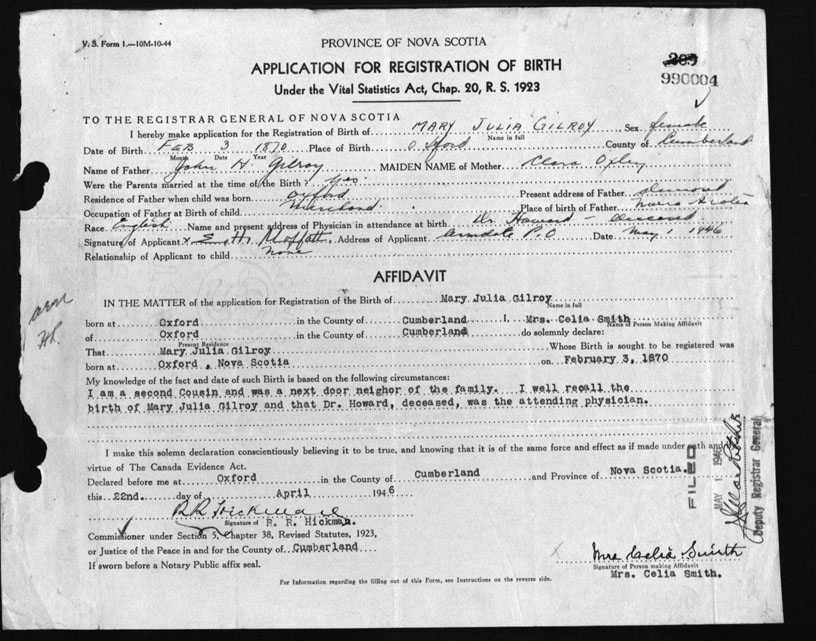 V. S. Form 1.—10M-10-44
PROVINCE OF NOVA SCOTIA
APPLICATION FOR REGISTRATION OF BIRTH
Under the Vital Statistics Act, Chap. 20, R. S. 1923
990004
TO THE REGISTRAR GENERAL OF NOVA SCOTIA
I hereby make application for the Registration of Birth of MARY JULIA GILROY Sex female
Name in full
Date of Birth FEB 3 1870 Place of Birth Oxford County of Cumberland
Month Date Year
Name of Father John H Gilroy MAIDEN NAME of Mother Clara Oxley
Were the Parents married at the time of the Birth? Yes.
Residence of Father when child was born Oxford Present address of Father
Occupation of Father at Birth of child Merchant Place of birth of Father Nova Scotia
Race English Name and present address of Physician in attendance at birth Dr. Howard — deceased
Signature of Applicant x E. H. Moffatt. Address of Applicant Armdale P.O. Date May 1 1946
Relationship of Applicant to child none
AFFIDAVIT
IN THE MATTER of the application for Registration of the Birth of Mary Julia Gilroy
Name in full
born at Oxford in the County of Cumberland I, Mrs. Celia Smith
Name of Person Making Affidavit
of Oxford in the County of Cumberland do solemnly declare:
Present Residence
That Mary Julia Gilroy Whose Birth is sought to be registered was
born at Oxford, Nova Scotia on February 3, 1870
My knowledge of the fact and date of such Birth is based on the following circumstances:
I am a second Cousin and was a next door neighor of the family. I well recall the
birth of Mary Julia Gilroy and that Dr. Howard, deceased, was the attending physician.
I make this solemn declaration conscientiously believing it to be true, and knowing that it is of the same force and effect as if made under oath and by
virtue of The Canada Evidence Act.
Declared before me at Oxford in the County of Cumberland and Province of Nova Scotia.
this 22nd. day of April 1946
R R Hickman
Signature of R. R. Hickman.
Commissioner under Section 5, Chapter 38, Revised Statutes, 1923,
or Justice of the Peace in and for the County of Cumberland
If sworn before a Notary Public affix seal.
Mrs Celia Smith
Signature of Person making Affidavit
Mrs. Celia Smith.
For Information regarding the filling out of this Form, see Instructions on the reverse side.
FILED
MAY 1 1946
Deputy Registrar General